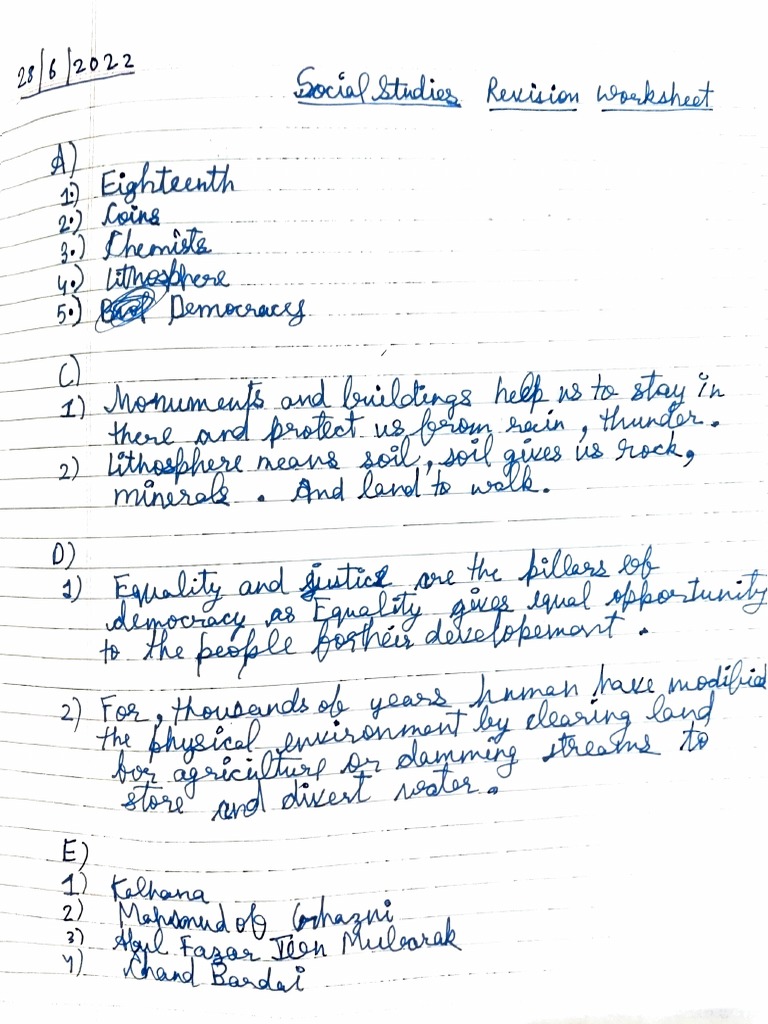 28/6/2022
Social Studies Revision Worksheet
A)
1.) Eighteenth
2.) Coins
3.) Chemists
4.) Lithosphere
5.) Democracy
C)
1) Monuments and buildings help us to stay in
there and protect us from rain, thunder.
2) Lithosphere means soil, soil gives us rock,
minerals. And land to walk.
D)
1) Equality and justice are the pillars of
democracy as Equality gives equal opportunity
to the people fortheir developemant.
2) For, thousands of years human have modified
the physical environment by clearing land
for agriculture or damming streams to
store and divert water.
E)
1) Kalhana
2) Mahmud of Ghazni
3) Abul Fazar Mubarak
4) Chand Bardai